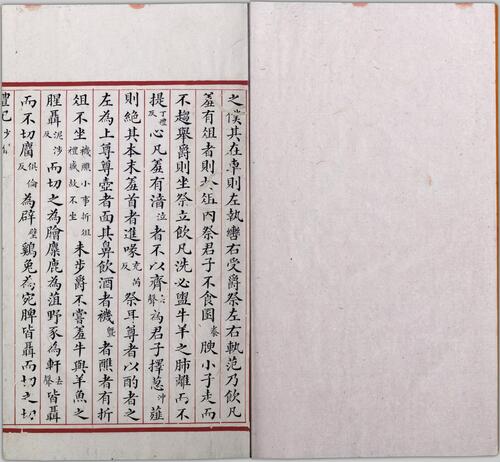 之僕其在車則左執轡右受爵祭左右軌范乃飲凡
羞有俎者則於俎內祭君子不食圂豢腴小子走而
不趨舉爵則坐祭立飲凡洗必盥牛羊之肺離而不
提丁禮反心凡羞有湇泣者不以齊去聲為君子擇葱沖薤
則絕其本末羞首者進喙充芮反祭耳尊者以酌者之
左為上尊尊壺者面其鼻飲酒者禨曁者醮者有折
俎不坐禨醮小事折俎禮盛故不坐未步爵不嘗羞牛與羊魚之
腥聶泥涉反而切之為膾麋鹿為菹野豕為軒去聲皆聶
而不切麕俱倫反為辟璧雞兔為宛脾皆聶而切之切
禮記少